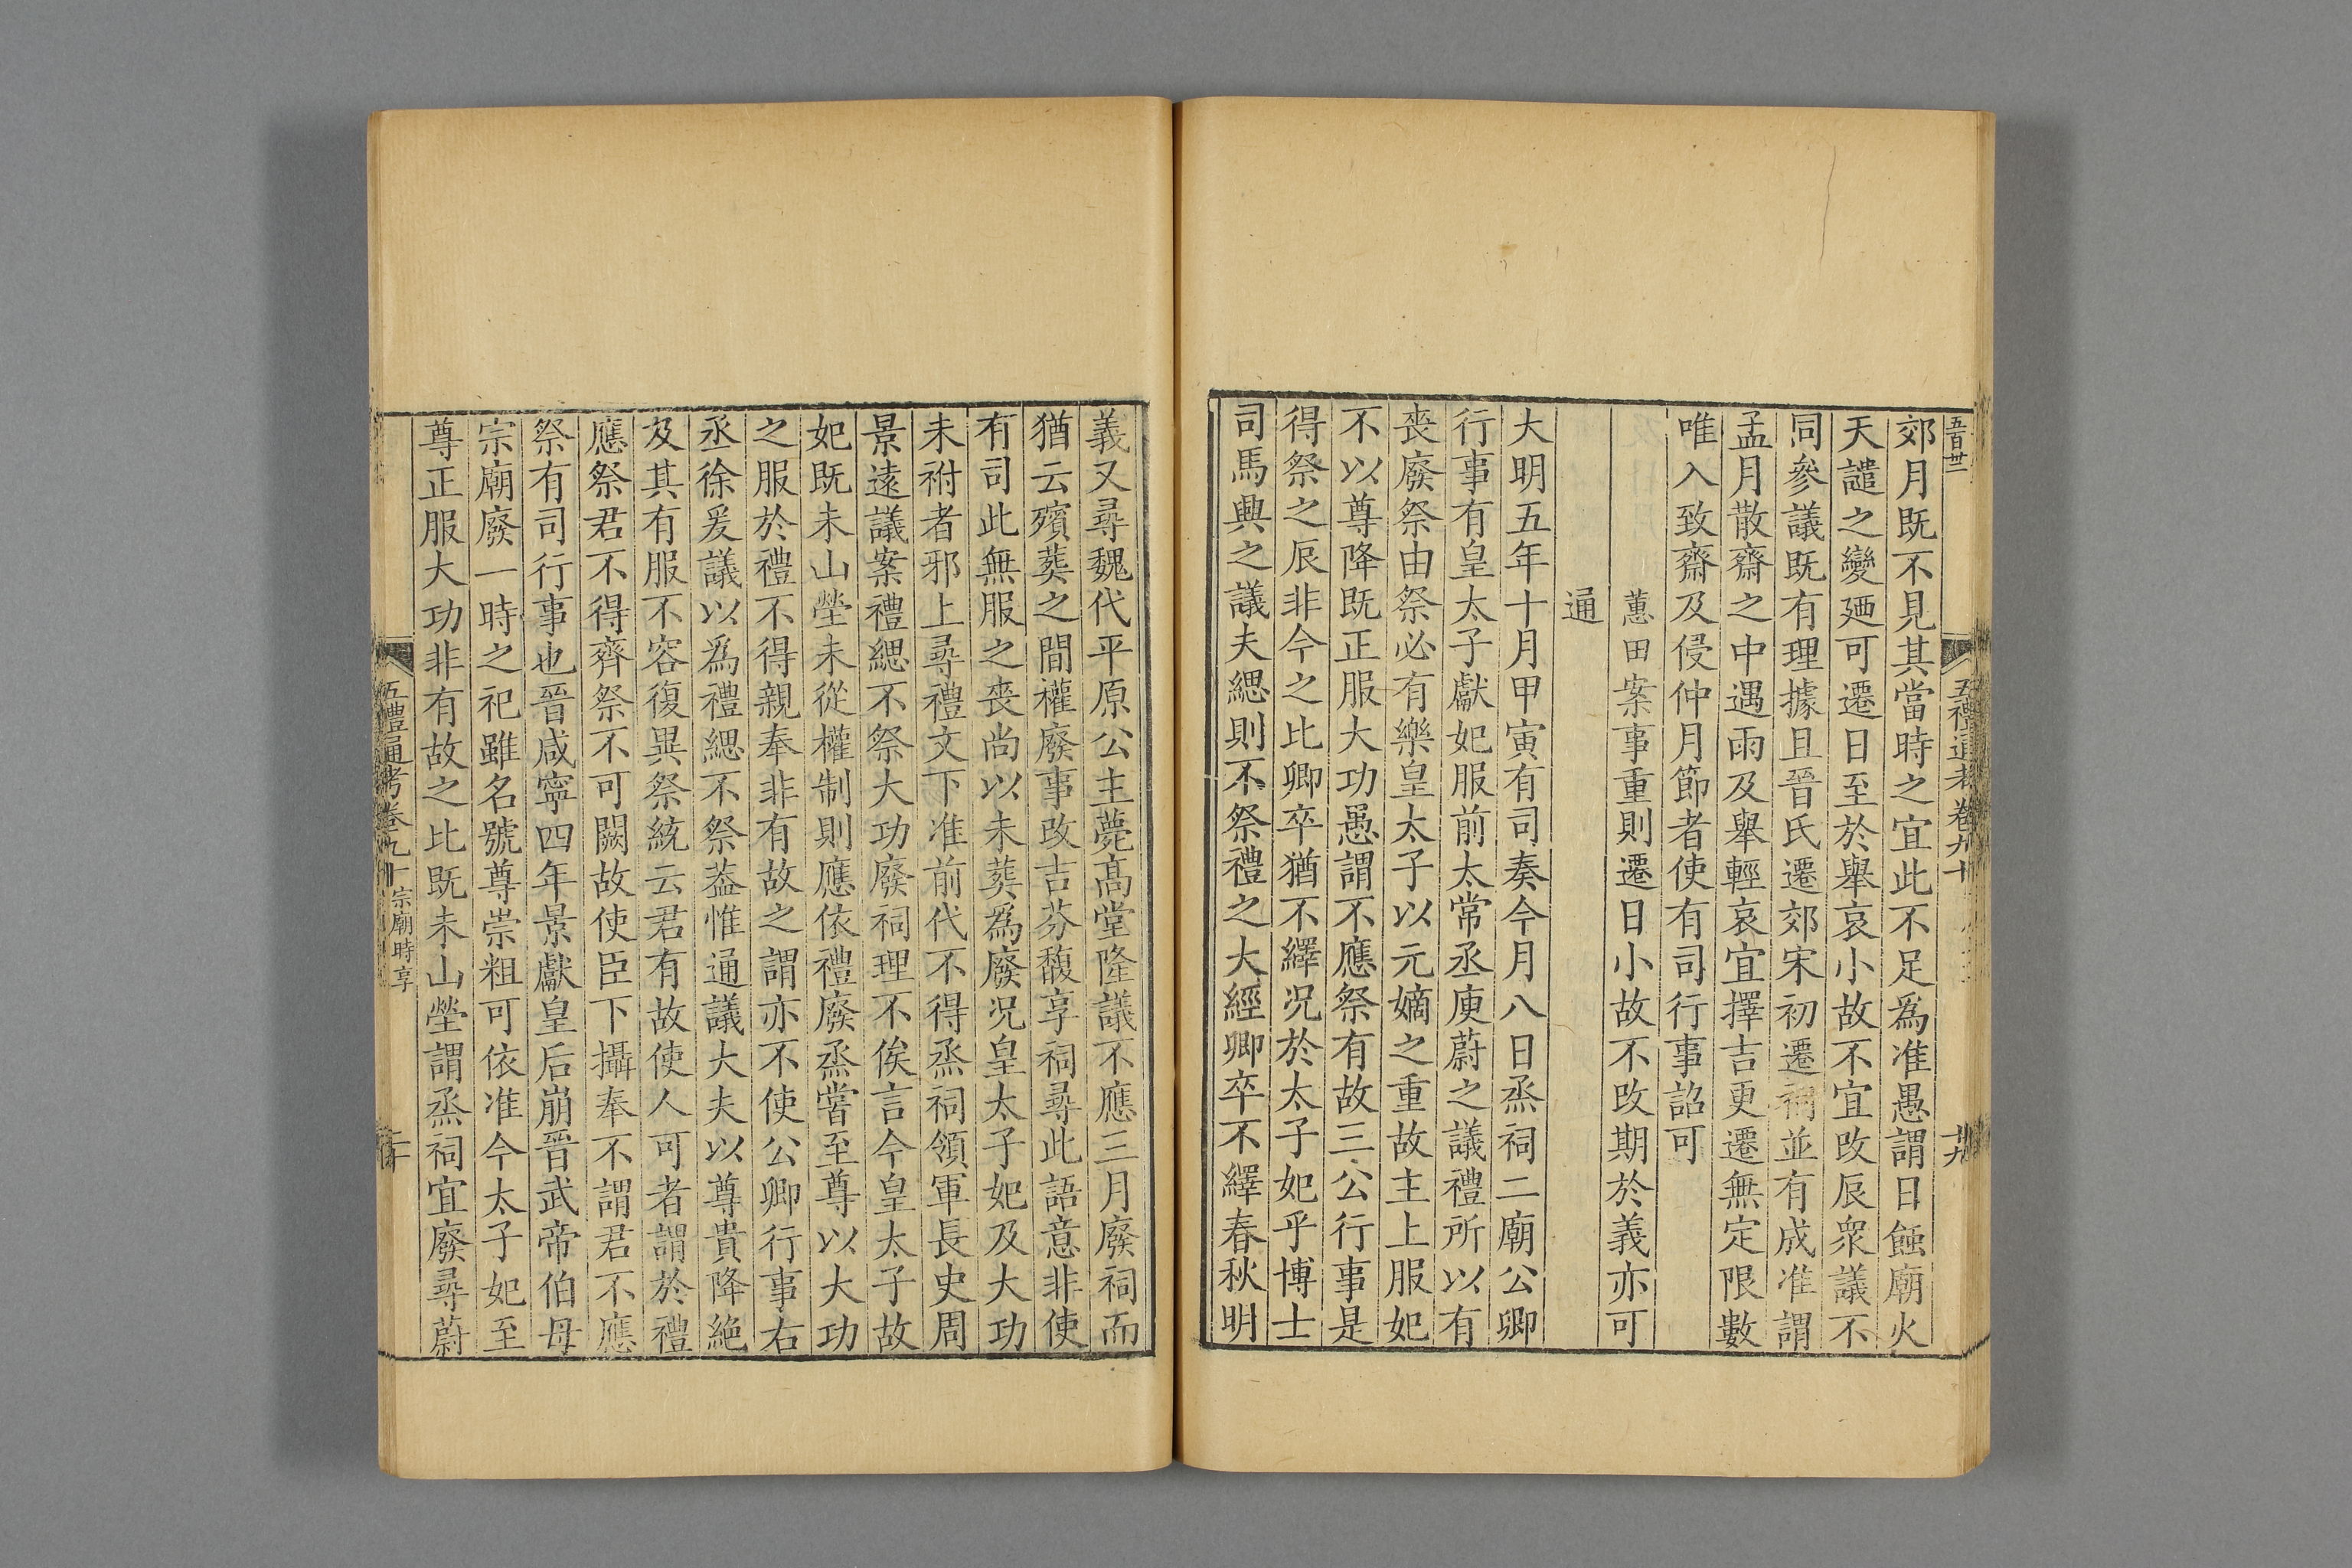 五百廿二
五禮通考卷九十
十九
郊月既不見其當時之宜此不足爲准愚謂日蝕廟火
天譴之變廼可遷日至於舉哀小故不宜改辰衆議不
同參議既有理據且晉氏遷郊宋初遷祠並有成准謂
孟月散齋之中遇雨及舉輕哀宜擇吉更遷無定限數
唯入致齋及侵仲月節者使有司行事詔可
蕙田案事重則遷日小故不改期於義亦可
通
大明五年十月甲寅有司奏今月八日烝祠二廟公卿
行事有皇太子獻妃服前太常丞庾蔚之議禮所以有
喪廢祭由祭必有樂皇太子以元嫡之重故主上服妃
不以尊降既正服大功愚謂不應祭有故三公行事是
得祭之辰非今之比卿卒猶不繹况於太子妃乎博士
司馬興之議夫緦則不祭禮之大經卿卒不繹春秋明
義又尋魏代平原公主薨髙堂隆議不應三月廢祠而
猶云殯葬之間權廢事改吉芬馥享祠尋此語意非使
有司此無服之喪尚以未葬爲廢况皇太子妃及大功
未祔者邪上尋禮文下准前代不得烝祠領軍長史周
景遠議案禮緦不祭大功廢祠理不俟言今皇太子故
妃既未山塋未從權制則應依禮廢烝嘗至尊以大功
之服於禮不得親奉非有故之謂亦不使公卿行事右
丞徐爰議以爲禮緦不祭葢惟通議大夫以尊貴降絶
及其有服不容復異祭統云君有故使人可者謂於禮
應祭君不得齊祭不可闕故使臣下攝奉不謂君不應
祭有司行事也晉咸寧四年景獻皇后崩晉武帝伯母
宗廟廢一時之祀雖名號尊崇粗可依准今太子妃至
尊正服大功非有故之比既未山塋謂烝祠宜廢尋蔚
五禮通考卷九十 宗廟時享
二十